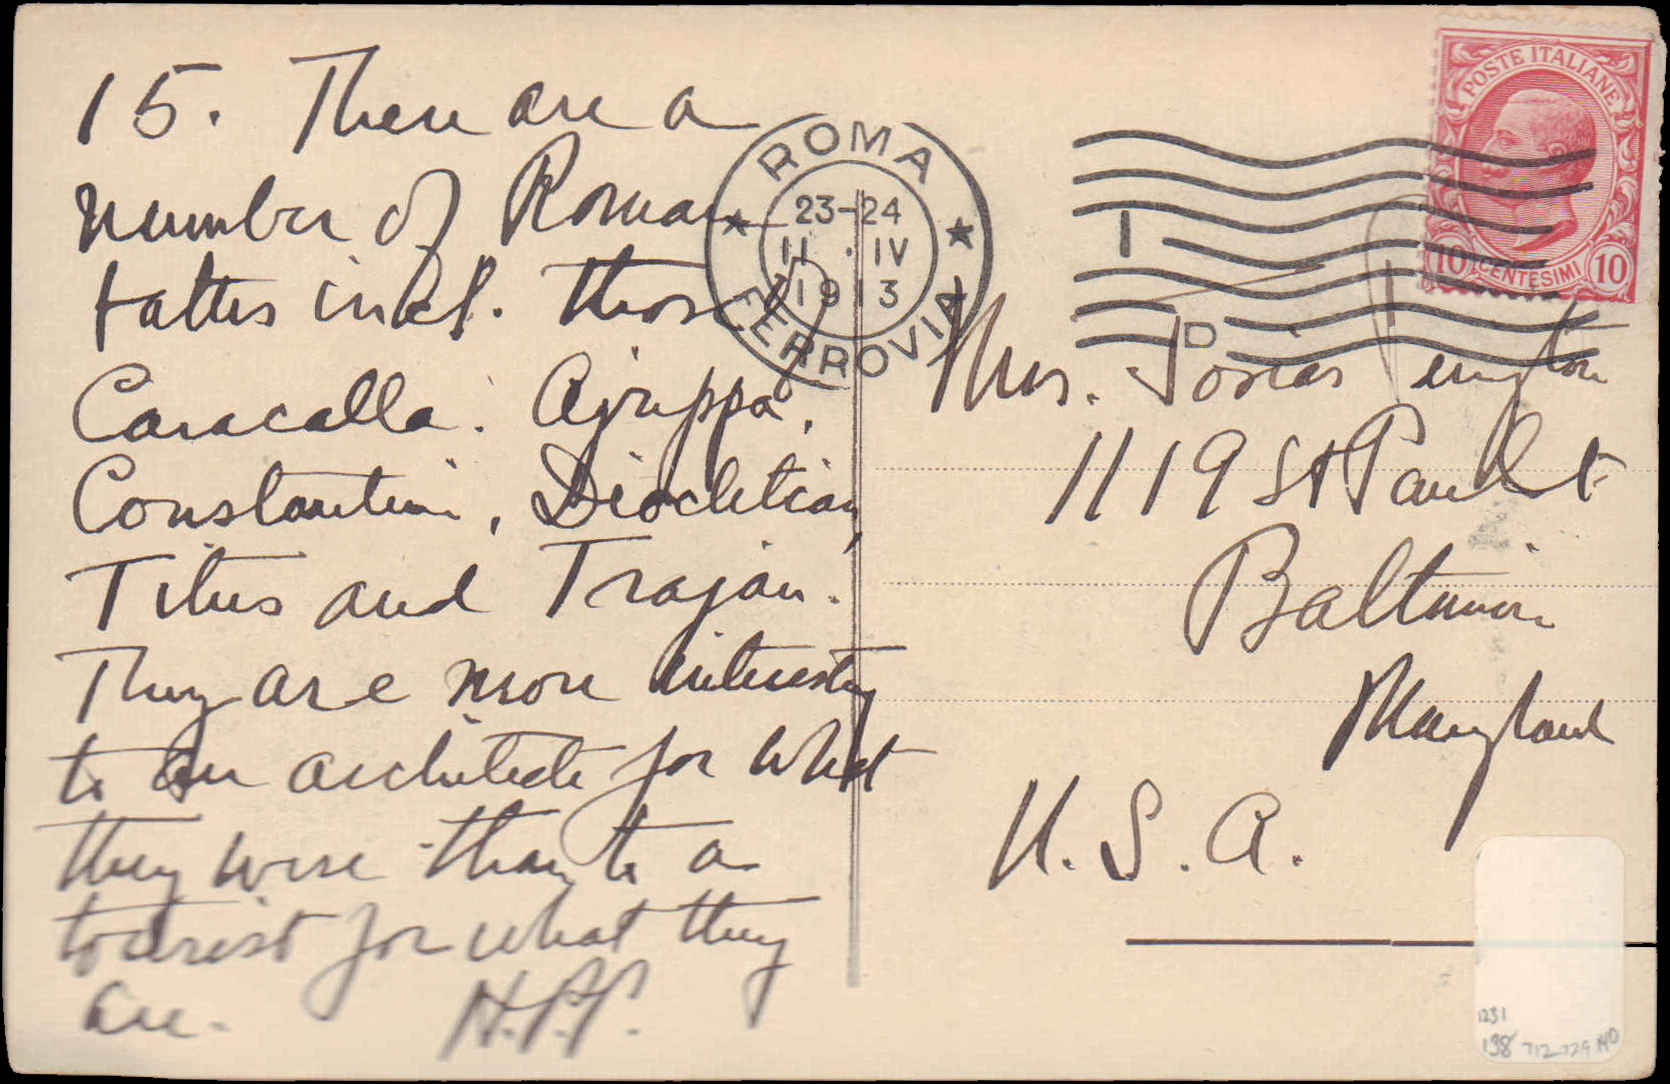 15. There are a
number of Roman
baths incl. those of
Caracalla. Agrippa,
Constantine, Diocletian,
Titus and Trajan.
They are more interesting
to an architect for what
they were than to a
tourist for what they
are. H.P.P.
ROMA
23-24
11 . IV
1913
FERROVIA
POSTE ITALIANE
10 CENTESIMI 10
Mrs. Josias Pennington
1119 St Paul St
Baltimore
Maryland
U.S.A.
1231
138 712-729 MD